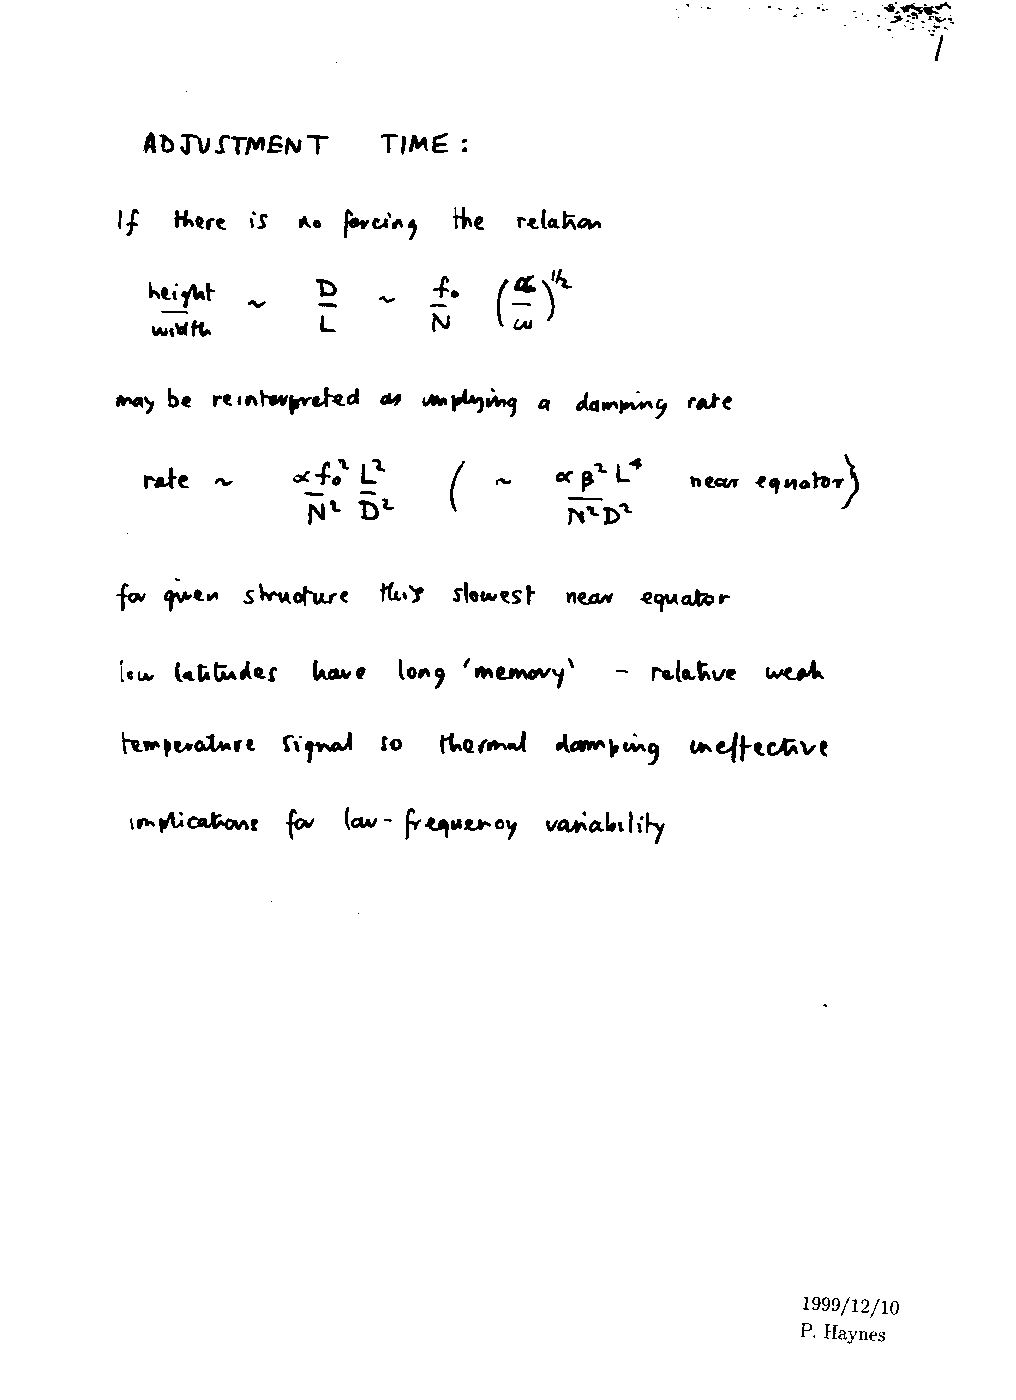 1
ADJUSTMENT TIME:
If there is no forcing the relation
height/width ~ D/L ~ f₀/N (α/ω)^1/2
may be reinterpreted as implying a damping rate
rate ~ αf₀²/N² L²/D² ( ~ αβ²L⁴/N²D² near equator)
for given structure this slowest near equator
low latitudes have long 'memory' - relative weak
temperature signal so thermal damping ineffective
implications for low-frequency variability
1999/12/10
P. Haynes